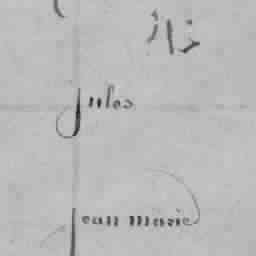 jules
jean marie